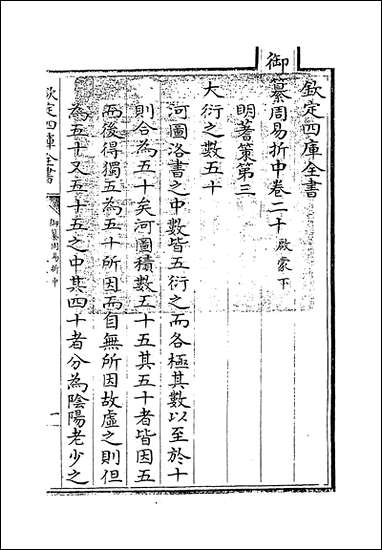 欽定四庫全書
御纂周易折中卷二十 啟蒙下
明蓍策第三
大衍之數五十
河圖洛書之中數皆五衍之而各極其數以至於十
則合為五十矣河圖積數五十五其五十者皆因五
而後得獨五為五十所因而自無所因故虛之則但
為五十又五十五之中其四十者分為陰陽老少之
欽定四庫全書
御纂周易折中
一